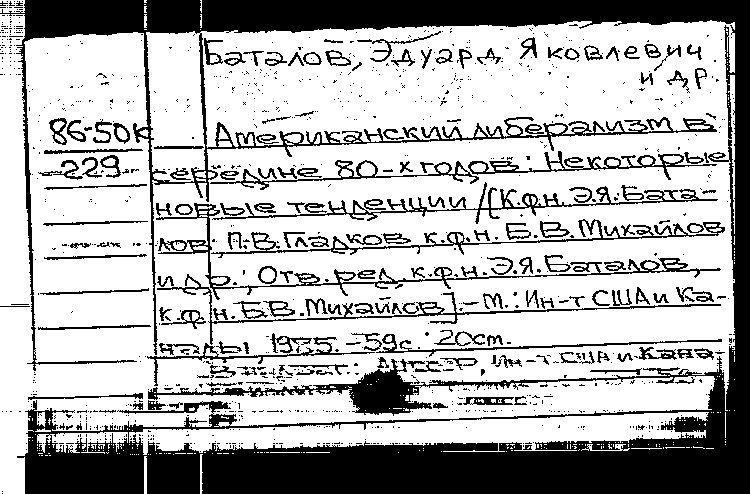 Баталов, Эдуард Яковлевич
и др.
86-50К
229
Американский либерализм в
середине 80-х годов: Некоторые
новые тенденции / [К.ф.н. Э.Я. Бата-
лов, П.В. Гладков, к.ф.н. Б.В. Михайлов
и др.; Отв. ред. к.ф.н. Э.Я. Баталов,
к.ф.н. Б.В. Михайлов]. - М.: Ин-т США и Ка-
нады, 1985. - 59с.; 20см.
В надзаг.: АН СССР, Ин-т США и Кана-